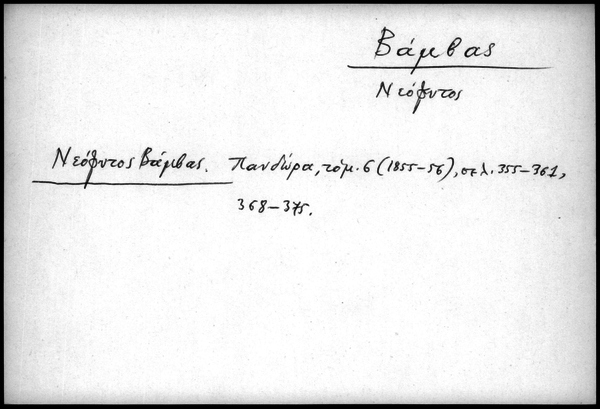 Βάμβας
Νεόφυτος
Νεόφυτος Βάμβας. Πανδώρα, τόμ. 6 (1855-56), σελ. 355-361,
368-375.